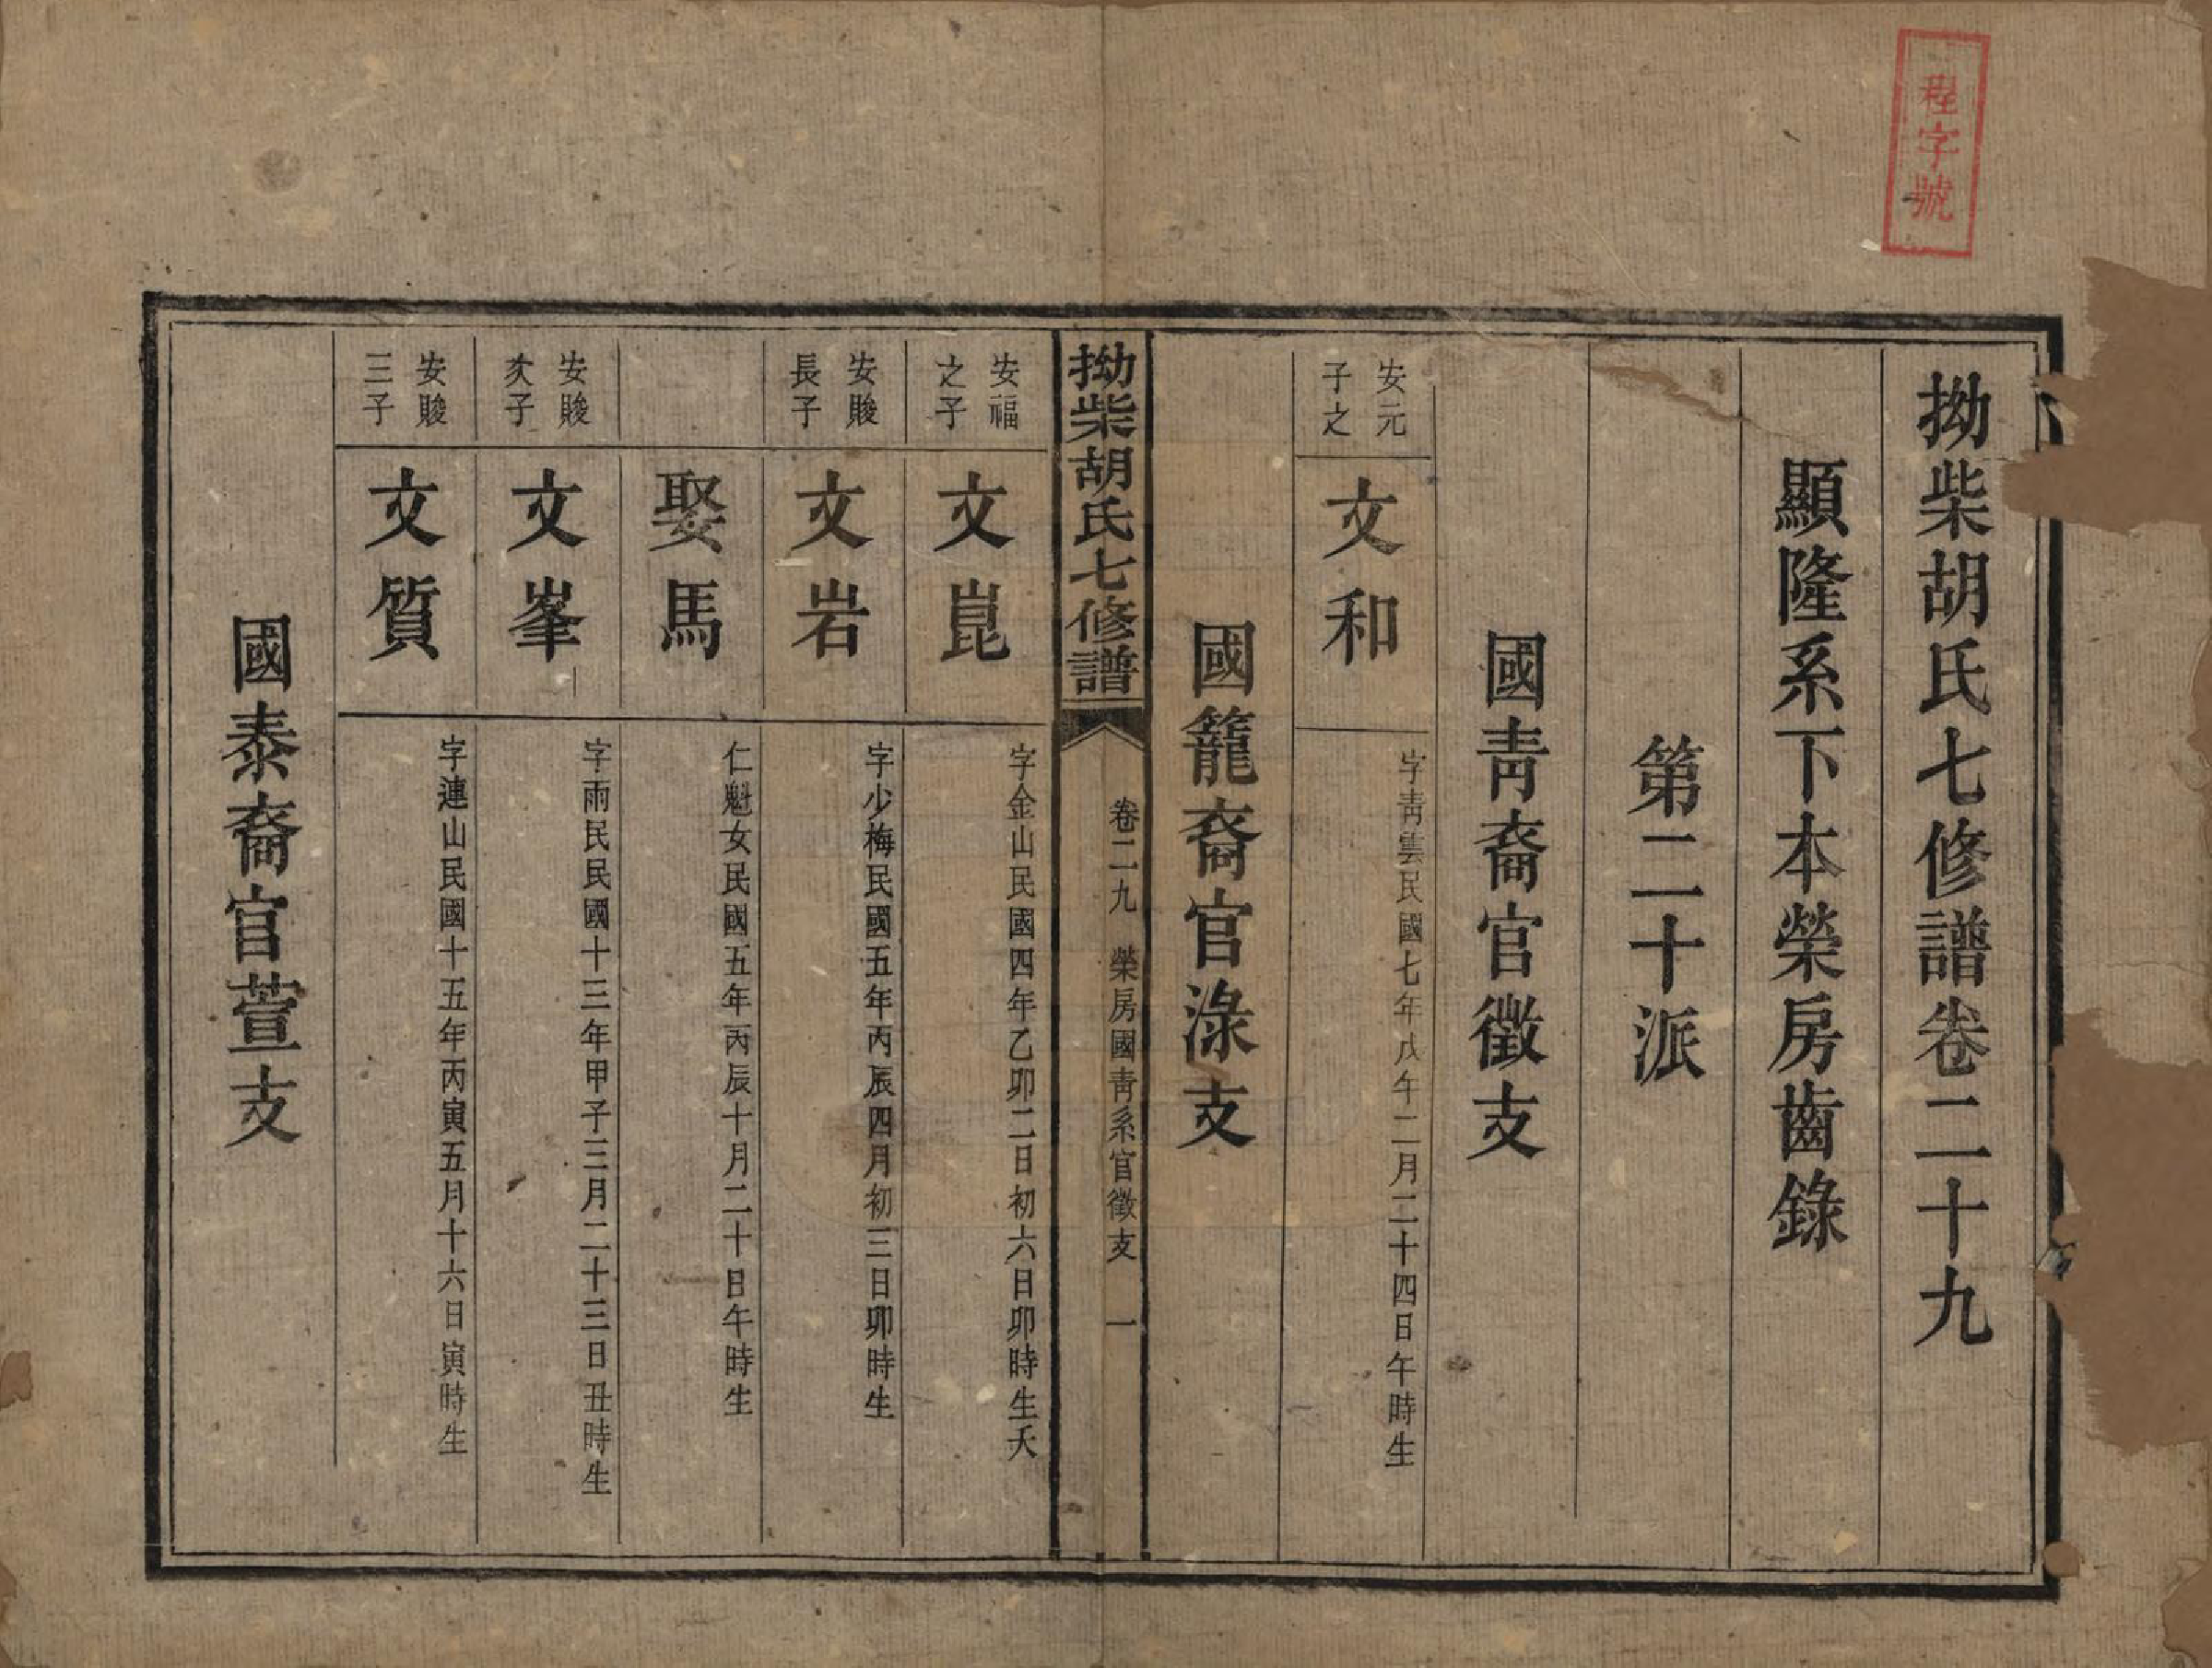 程字號
拗柴胡氏七修譜卷二十九
顯隆系下本榮房齒錄
第二十派
國靑裔官徵支
安元
子之
文和
字靑雲民國七年戊午二月二十四日午時生
國籠裔官淥支
拗柴胡氏七修譜
卷二九 榮房國靑系官徵支 一
安福
之子
文崑
字金山民國四年乙卯二日初六日卯時生夭
安賧
長子
文岩
字少梅民國五年丙辰四月初三日卯時生
娶馬
仁魁女民國五年丙辰十月二十日午時生
安賧
次子
文峯
字雨民民國十三年甲子三月二十三日丑時生
安賧
三子
文質
字連山民國十五年丙寅五月十六日寅時生
國泰裔官萱支